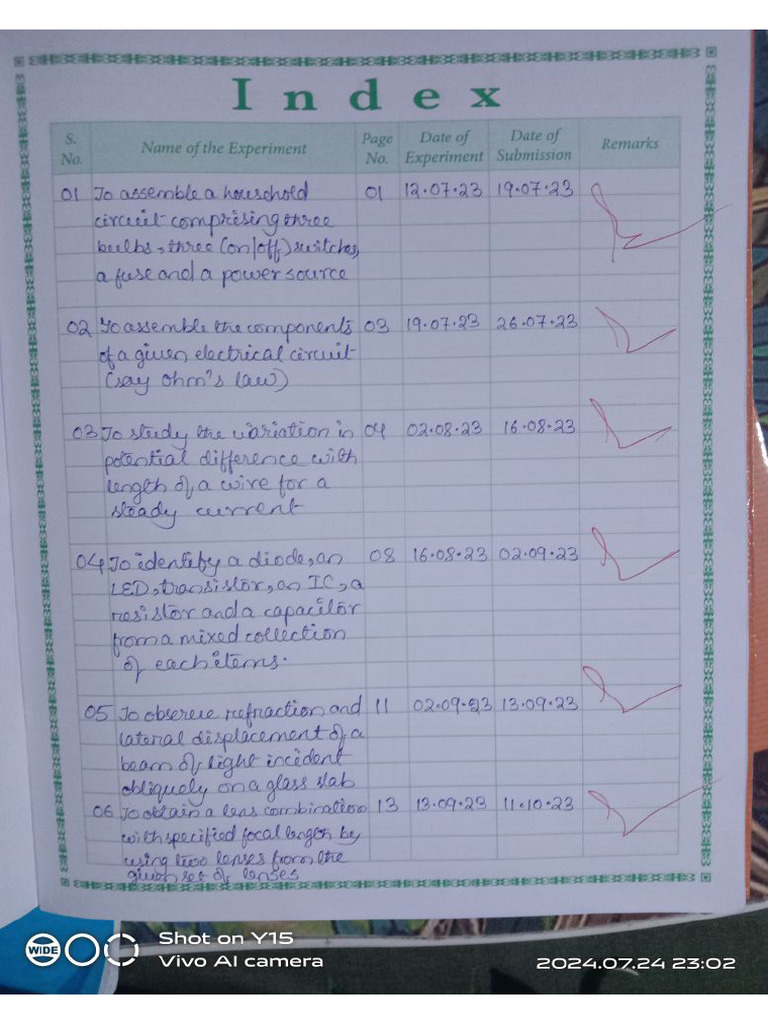 Index
S. No. Name of the Experiment Page No. Date of Experiment Date of Submission Remarks
01 To assemble a household 01 12.07.23 19.07.23
circuit comprising three
bulbs, three (on/off) switches,
a fuse and a power source
02 To assemble the components 03 19.07.23 26.07.23
of a given electrical circuit
(say ohm's law)
03 To study the variation in 04 02.08.23 16.08.23
potential difference with
length of a wire for a
steady current
04 To identify a diode, an 08 16.08.23 02.09.23
LED, transistor, an IC, a
resistor and a capacitor
from a mixed collection
of each items.
05 To observe refraction and 11 02.09.23 13.09.23
lateral displacement of a
beam of light incident
obliquely on a glass slab
06 To obtain a lens combination 13 13.09.23 11.10.23
with specified focal length by
using two lenses from the
given set of lenses
WIDE
Shot on Y15
Vivo AI camera
2024.07.24 23:02